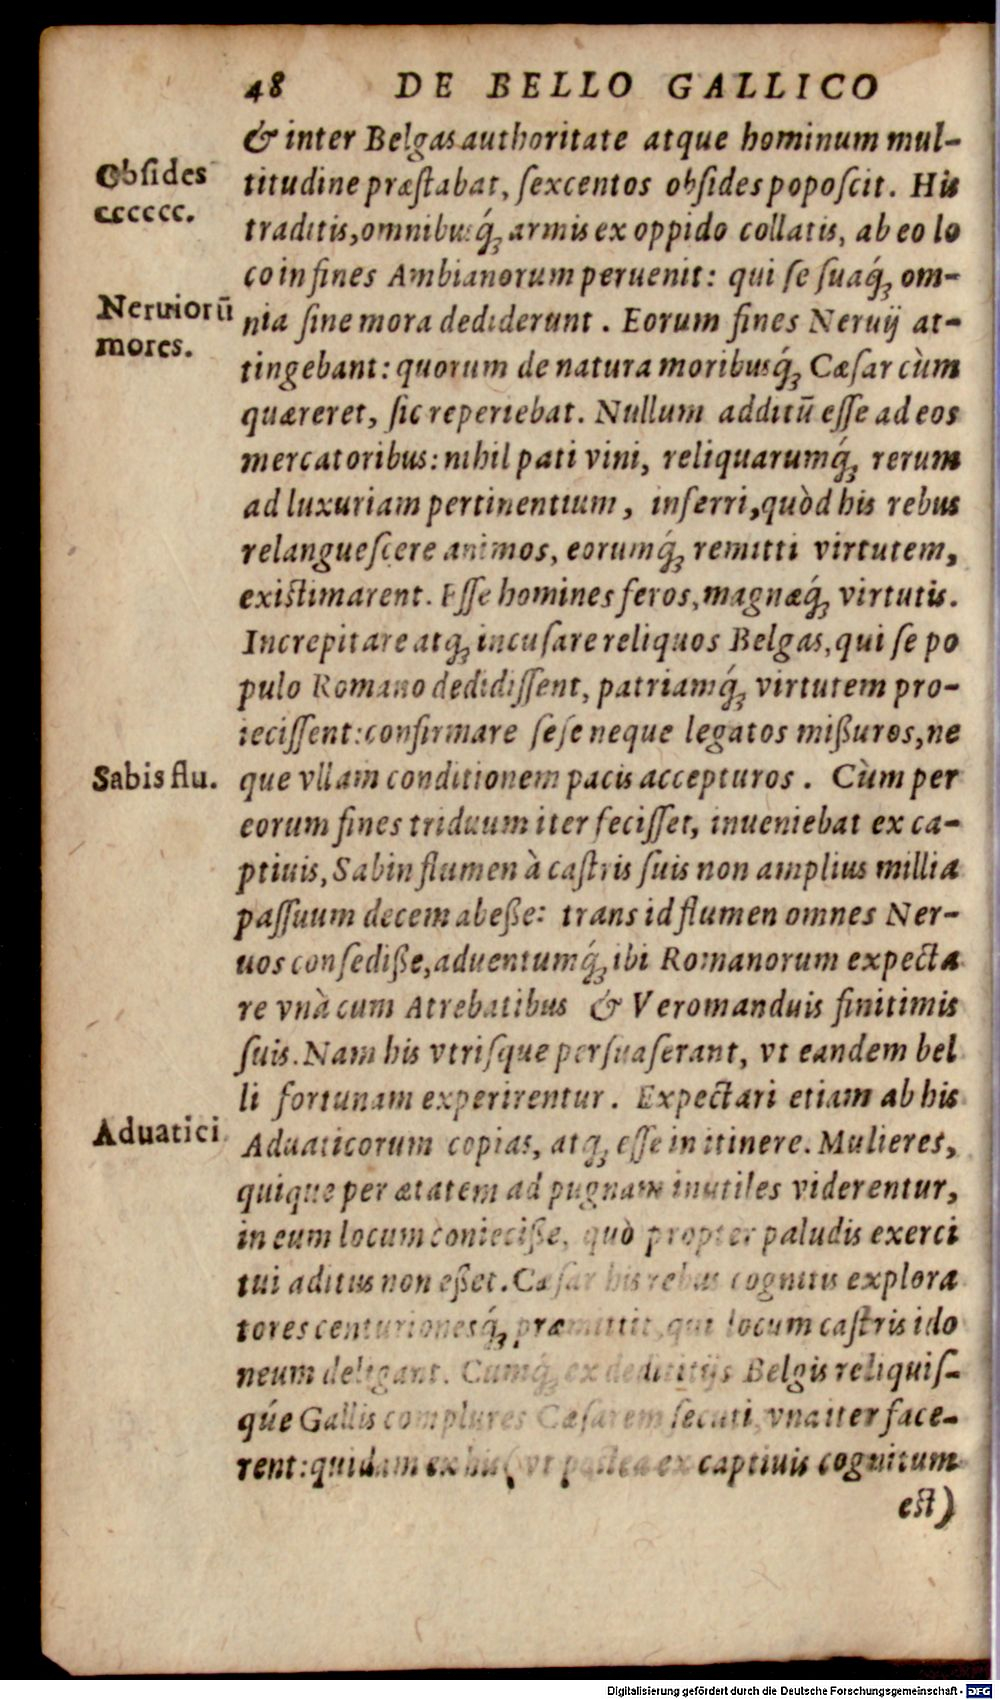 48 DE BELLO GALLICO
& inter Belgas authoritate atque hominum mul-
titudine præſtabat, ſexcentos obſides popoſcit. His
Obſides
cccccc.
traditis, omnibuſq́ꝫ armis ex oppido collatis, ab eo lo
co in fines Ambianorum peruenit: qui ſe ſuaq́ꝫ om-
Neruiorū
mores.
nia ſine mora dediderunt. Eorum fines Neruij at-
tingebant: quorum de natura moribusq́ꝫ Cæſar cùm
quæreret, ſic reperiebat. Nullum additū eſſe ad eos
mercatoribus: nihil pati vini, reliquarumq́ꝫ rerum
ad luxuriam pertinentium, inferri, quòd his rebus
relangueſcere animos, eorumq́ꝫ remitti virtutem,
exiſtimarent. Eſſe homines feros, magnæq́ꝫ virtutis.
Increpitare atqꝫ incuſare reliquos Belgas, qui ſe po
pulo Romano dedidiſſent, patriamq́ꝫ virtutem pro-
ieciſſent: confirmare ſeſe neque legatos mißuros, ne
Sabis flu.
que vllam conditionem pacis accepturos. Cùm per
eorum fines triduum iter feciſſet, inueniebat ex ca-
ptiuis, Sabin flumen à caſtris ſuis non amplius millia
paſſuum decem abeße: trans id flumen omnes Ner-
uos conſediße, aduentumq́ꝫ ibi Romanorum expecta
re vnà cum Atrebatibus & Veromanduis finitimis
ſuis. Nam his vtriſque perſuaſerant, vt eandem bel
li fortunam experirentur. Expectari etiam ab his
Aduatici
Aduaticorum copias, atqꝫ eſſe in itinere. Mulieres,
quique per ætatem ad pugnam inutiles viderentur,
in eum locum conieciße, quò propter paludis exerci
tui aditus non eßet. Cæſar his rebus cognitis explora
tores centurionesq́ꝫ præmittit, qui locum caſtris ido
neum deligant. Cumq́ꝫ ex dedititijs Belgis reliquiſ-
qúe Gallis complures Cæſarem ſecuti, vna iter face-
rent: quidam ex his (vt poſtea ex captiuis cognitum
eſt)
Digitalisierung gefördert durch die Deutsche Forschungsgemeinschaft - DFG